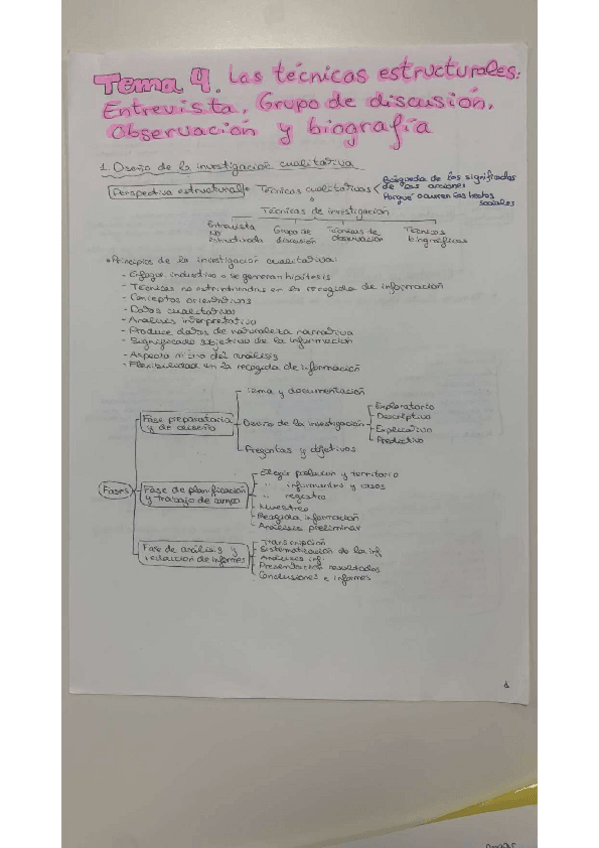 Tema 4. Las técnicas estructurales:
Entrevista, Grupo de discusión,
Observación y biografía
1. Diseño de la investigación cualitativa
Perspectiva estructural
Técnicas cualitativas
Búsqueda de los significados
de las acciones
Porqué ocurren los hechos
sociales
Técnicas de investigación
Entrevista
no
estructurada
Grupo de
discusión
Técnicas de
observación
Técnicas
biográficas
• Principios de la investigación cualitativa:
- Enfoque inductivo o se generan hipótesis
- Técnicas no estandarizadas en la recogida de información
- Conceptos orientativos
- Datos cualitativos
- Análisis interpretativo
- Produce datos de naturaleza narrativa
- Significado subjetivo de la información
- Aspecto micro del análisis
- Flexibilidad en la recogida de información
Fases
Fase preparatoria
y de diseño
- Tema y documentación
- Diseño de la investigación
- Exploratorio
- Descriptivo
- Explicativo
- Predictivo
- Preguntas y objetivos
Fase de planificación
y trabajo de campo
- Elegir población y territorio
- " informantes y casos
- " registro
- Muestreo
- Recogida información
- Análisis preliminar
Fase de análisis y
redacción de informes
- Transcripción
- Sistematización de la inf
- Análisis inf.
- Presentación resultados
- Conclusiones e informes